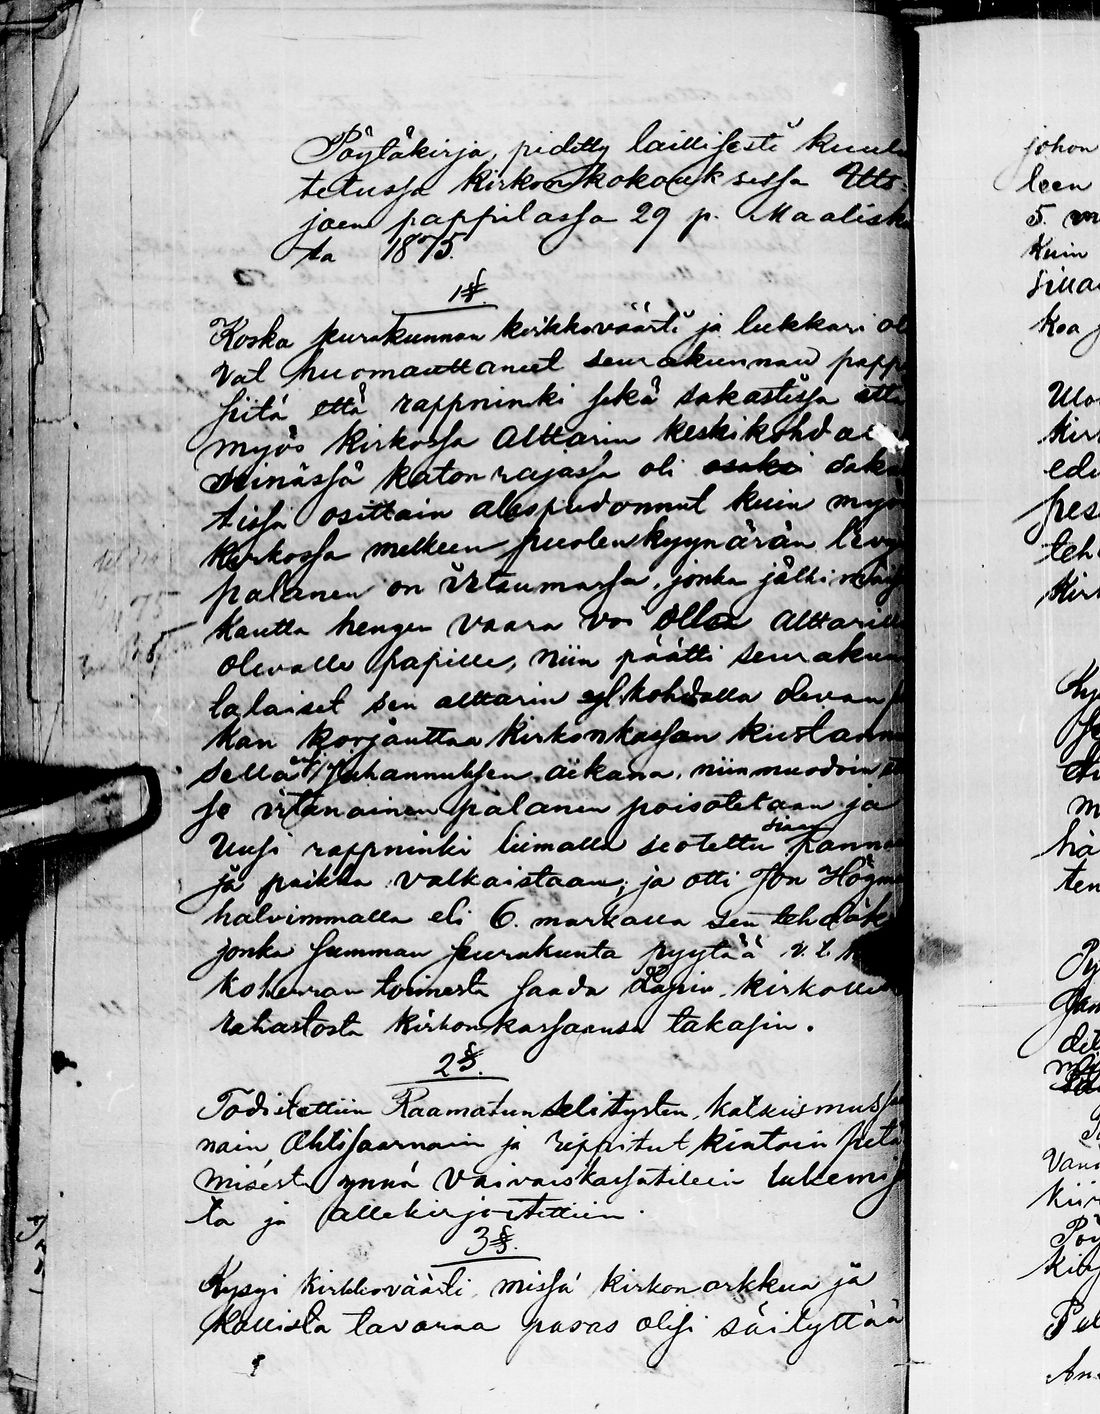 Pöytäkirja, pidetty laillisesti kuulu
tetussa kirkonkokouksessa Uts-
joen pappilassa 29 p. Maalisk
ta 1875.
1 §.
Koska seurakunnan kirkkoväärti ja lukkari oli
vat huomauttaneet seurakunnan pappi
sitä että rappninki sekä sakastissa että
myös kirkossa Alttarin keskikohdal
seinässä katon rajassa oli osaksi saka
tissa osittain alasprudonnut kuin myös
kirkossa melkeen puolen kyynärän levy
palanen on irtaumassa, jonka jälkimäise
kautta hengen vaara voi olla Alttarilla
olevalle papille, niin päätti seurakun
lalaiset sen alttarin yl kohdalla olevan
kan korjauttaa Kirkonkassan kustannu
sella Juhannuksen aikana, niinmuodoin
se irtanainen palanen poisotetaan ja
Uusi rappninki liimalla seotettu siaan pannaan
ja paikka valkaistaan; ja otti Jon Högman
halvimmalla eli 6. markalla sen tehdäk
jonka summan seurakunta pyytää v. t.
koherran toimesta saada Lapin kirkollis
rahastosta kirkonkassaansa takasin.
2 §.
Todistettiin Raamatun selitysten, katkismussaar
nain Ohtisaarnain ja rippitutkintoin pitä
misestä ynnä Vaivaiskassatilein lukemis
ta ja allekirjoitettiin.
3 §.
Kysyi kirkkoväärti, missä kirkon arkkua ja
kallista tavaraa paras olisi säilyttää
johon
leen
5. m
Kuin
sillai
koa
kirk
edu
pes
teh
kirk
m
hä
ten
Vai
kiir
Pöy
kirj
Pul
An